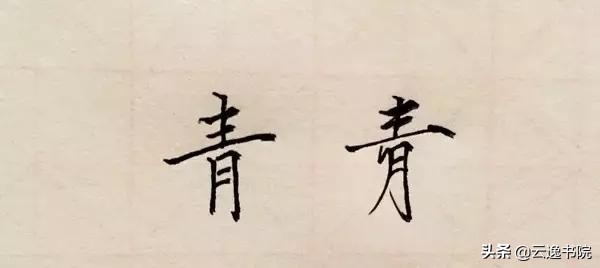 青 青
头条 @云逸书院